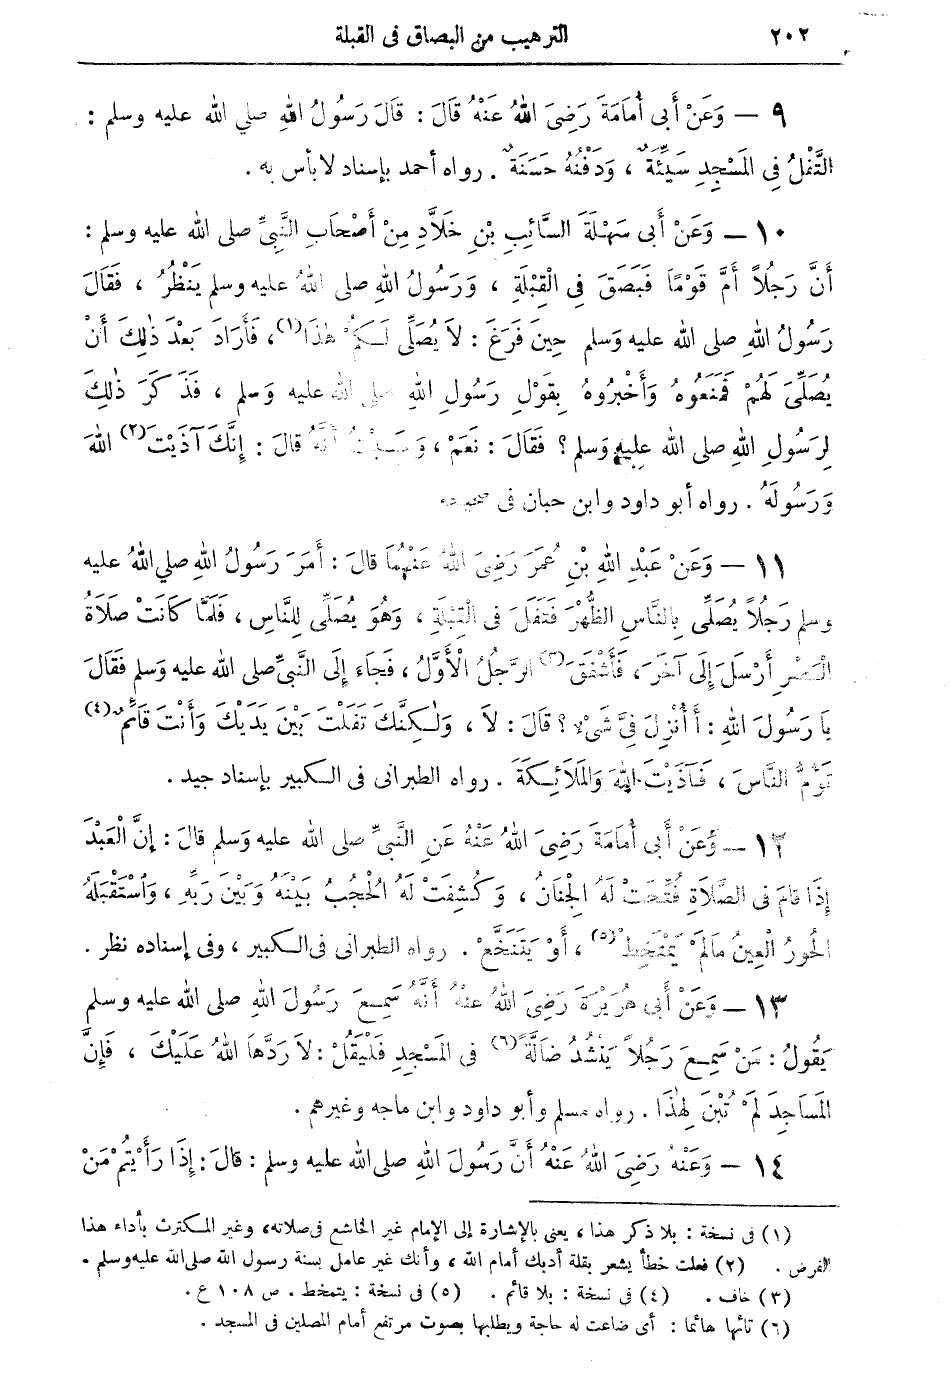 ٢٠٢ الترهيب من البصاق فى القبلة
٩ — وَعَنْ أَبِى أُمَامَةَ رَضِىَ اللهُ عَنْهُ قَالَ : قَالَ رَسُولُ اللهِ صلي الله عليه وسلم :
التَّفْلُ فِى المَسْجِدِ سَيِّئَةٌ ، وَدَفْنُهُ حَسَنَةٌ . رواه أحمد بإسناد لا بأس به .
١٠ — وَعَنْ أَبِى سَهْلَةَ السَّائِبِ بْنِ خَلاَّدٍ مِنْ أَصْحَابِ النَّبِىِّ صلى الله عليه وسلم :
أَنَّ رَجُلاً أَمَّ قَوْمًا فَبَصَقَ فِى الْقِبْلَةِ ، وَرَسُولُ اللهِ صلى اللهُ عليه وسلم يَنْظُرُ ، فَقَالَ
رَسُولُ اللهِ صلى الله عليه وَسلم حِينَ فَرَغَ : لاَ يُصَلِّى لَكُمْ هٰذَا (١) ، فَأَرَادَ بَعْدَ ذٰلِكَ أَنْ
يُصَلِّىَ لَهُمْ فَمَنَعُوهُ وَأَخْبَرُوهُ بِقَوْلِ رَسُولِ اللهِ صلى الله عليه وَسلم ، فَذَكَرَ ذٰلِكَ
لِرَسُولِ اللهِ صلى الله عليه وَسلم ؟ فَقَالَ : نَعَمْ ، وَحَسِبْتُ أَنَّهُ قالَ : إِنَّكَ آذَيْتَ (٢) اللهَ
وَرَسُولَهُ . رواه أبو داود وابن حبان فى صحيحه
١١ — وَعَنْ عَبْدِ اللهِ بْنِ عُمَرَ رَضِىَ اللهُ عَنْهُمَا قالَ : أَمَرَ رَسُولُ اللهِ صلى اللهُ عليه
وسلم رَجُلاً يُصَلِّى بِالنَّاسِ الظُّهْرَ فَتَفَلَ فِى الْقِبْلَةِ ، وَهُوَ يُصَلِّى لِلنَّاسِ ، فَلَمَّا كَانَتْ صَلاَةُ
الْعَصْرِ أَرْسَلَ إِلَى آخَرَ ، فَأَشْفَقَ (٣) الرَّجُلُ الْأَوَّلُ ، فَجَاءَ إِلَى النَّبِىِّ صلى الله عليه وَسلم فَقَالَ
يَا رَسُولَ اللهِ : أَأُنْزِلَ فِىَّ شَىْءٌ ؟ قالَ : لاَ ، وَلٰكِنَّكَ تَفَلْتَ بَيْنَ يَدَيْكَ وَأَنْتَ قَائِمٌ (٤)
تَؤُمُّ النَّاسَ ، فَآذَيْتَ اللهَ وَالمَلاَئِكَةَ . رواه الطبرانى فى الكبير بإسناد جيد .
١٢ — وَعَنْ أَبِى أُمَامَةَ رَضِىَ اللهُ عَنْهُ عَنِ النَّبِىِّ صلى الله عليه وَسلم قالَ : إِنَّ الْعَبْدَ
إِذَا قامَ فِى الصَّلاَةِ فُتِحَتْ لَهُ الْجِنَانُ ، وَكُشِفَتْ لَهُ الْحُجُبُ بَيْنَهُ وَبَيْنَ رَبِّهِ ، وَاسْتَقْبَلَهُ
الحُورُ الْعِينُ مَالَمْ يَمْتَخِطْ (٥) ، أَوْ يَتَنَخَّعْ . رواه الطبرانى فى الكبير ، وفى إسناده نظر .
١٣ — وَعَنْ أَبِى هُرَيْرَةَ رَضِىَ اللهُ عَنْهُ أَنَّهُ سَمِعَ رَسُولَ اللهِ صلى الله عليه وسلم
يَقُولُ : مَنْ سَمِعَ رَجُلاً يَنْشُدُ ضَالَّةً (٦) فِى المَسْجِدِ فَلْيَقُلْ : لاَ رَدَّهَا اللهُ عَلَيْكَ ، فَإِنَّ
المَسَاجِدَ لَمْ تُبْنَ لِهٰذَا . رواه مسلم وأبو داود وابن ماجه وغيرهم .
١٤ — وَعَنْهُ رَضِىَ اللهُ عَنْهُ أَنَّ رَسُولَ اللهِ صلى الله عليه وسلم : قالَ : إِذَا رَأَيْتُمْ مَنْ
(١) فى نسخة : بلا ذكر هذا ، يعنى بالإشارة إلى الإمام غير الخاشع فى صلاته، وغير المكترث بأداء هذا
الفرض . (٢) فعلت خطأ يشعر بقلة أدبك أمام الله ، وأنك غير عامل بسنة رسول الله صلى الله عليه وسلم .
(٣) خاف . (٤) فى نسخة : بلا قائم . (٥) فى نسخة : يتمخط . ص ١٠٨ ع .
(٦) تائها هائما : أى ضاعت له حاجة ويطلبها بصوت مرتفع أمام المصلين فى المسجد .